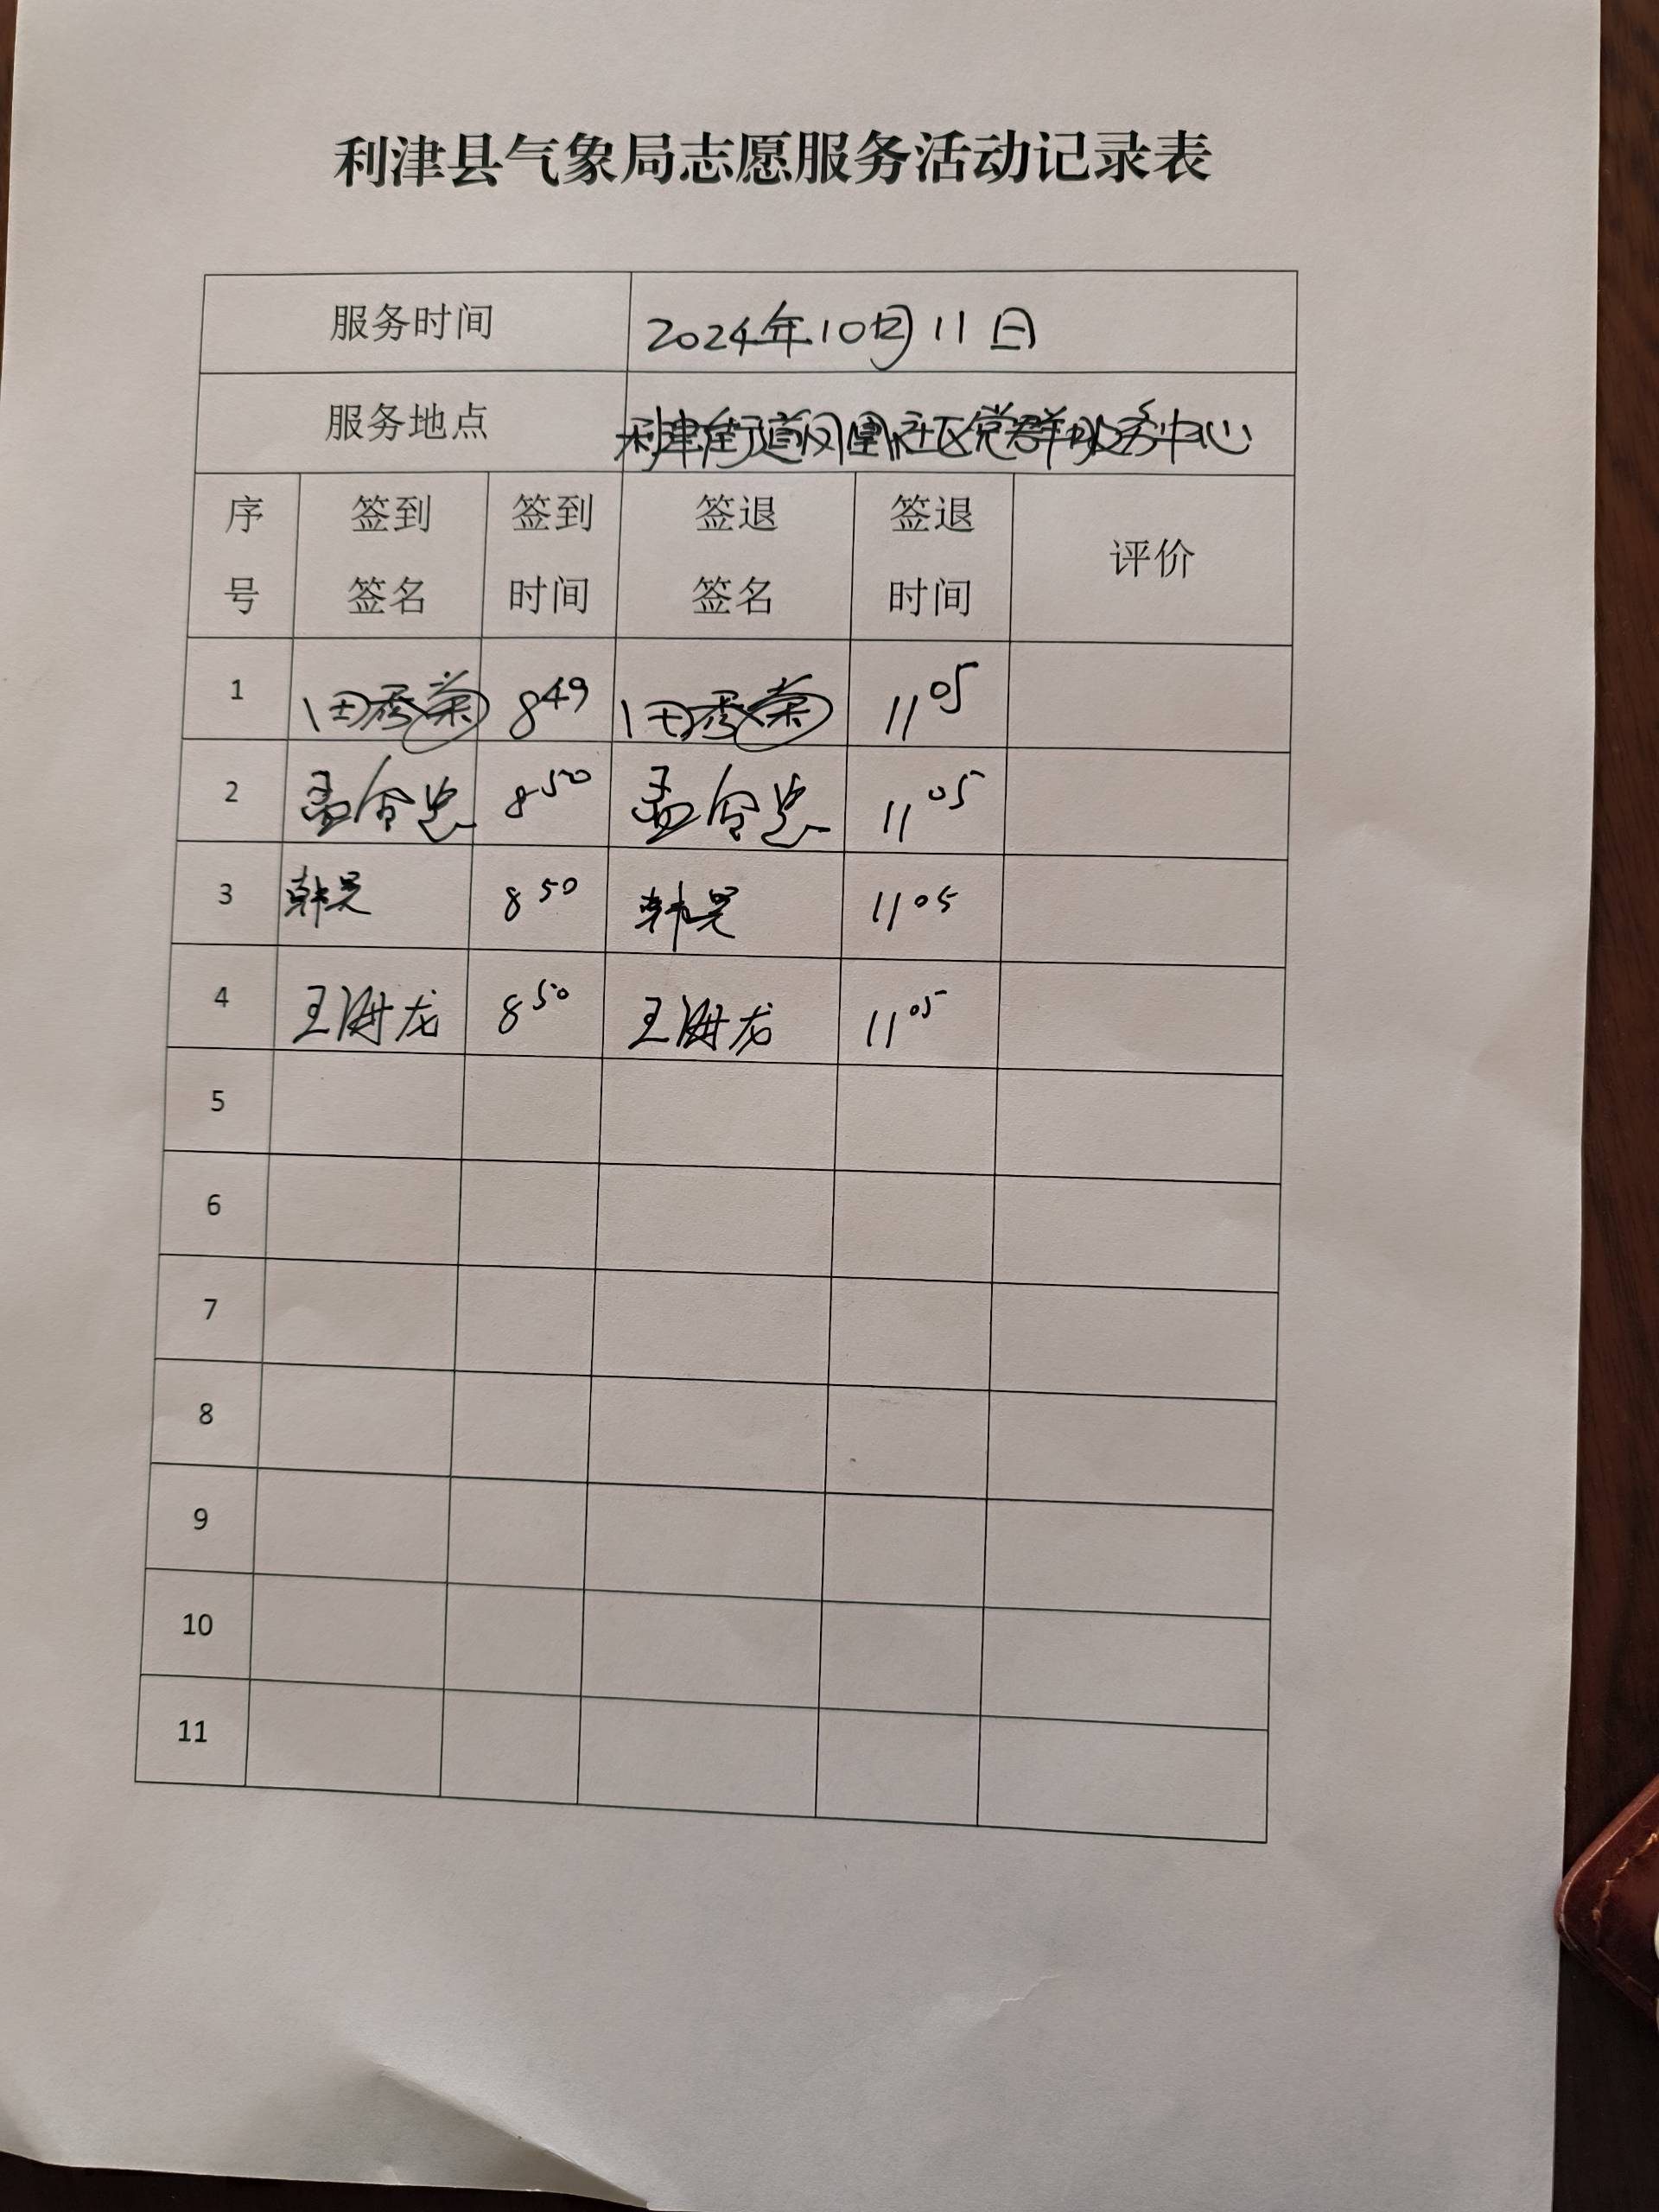 利津县气象局志愿服务活动记录表
服务时间 2024年10月11日
服务地点 利津街道凤凰社区党群服务中心
序号 签到签名 签到时间 签退签名 签退时间 评价
1 田秀荣 8 49 田秀荣 11 05
2 孟令忠 8 50 孟令忠 11 05
3 韩昊 8 50 韩昊 11 05
4 王 龙 8 50 王 龙 11 05
5
6
7
8
9
10
11